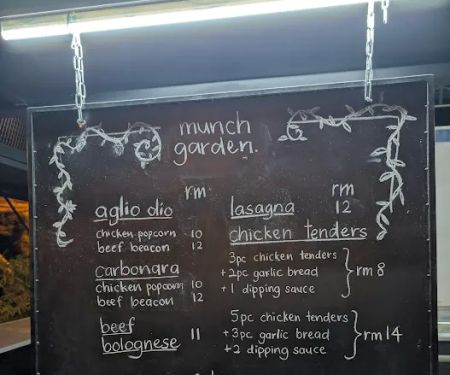 munch
garden.
rm
aglio olio
chicken popcorn 10
beef beacon 12
carbonara
chicken popcorn 10
beef beacon 12
beef
bolognese 11
rm
lasagna 12
chicken tenders
3pc chicken tenders
+2pc garlic bread
+1 dipping sauce
rm 8
5pc chicken tenders
+3pc garlic bread
+2 dipping sauce
rm 14